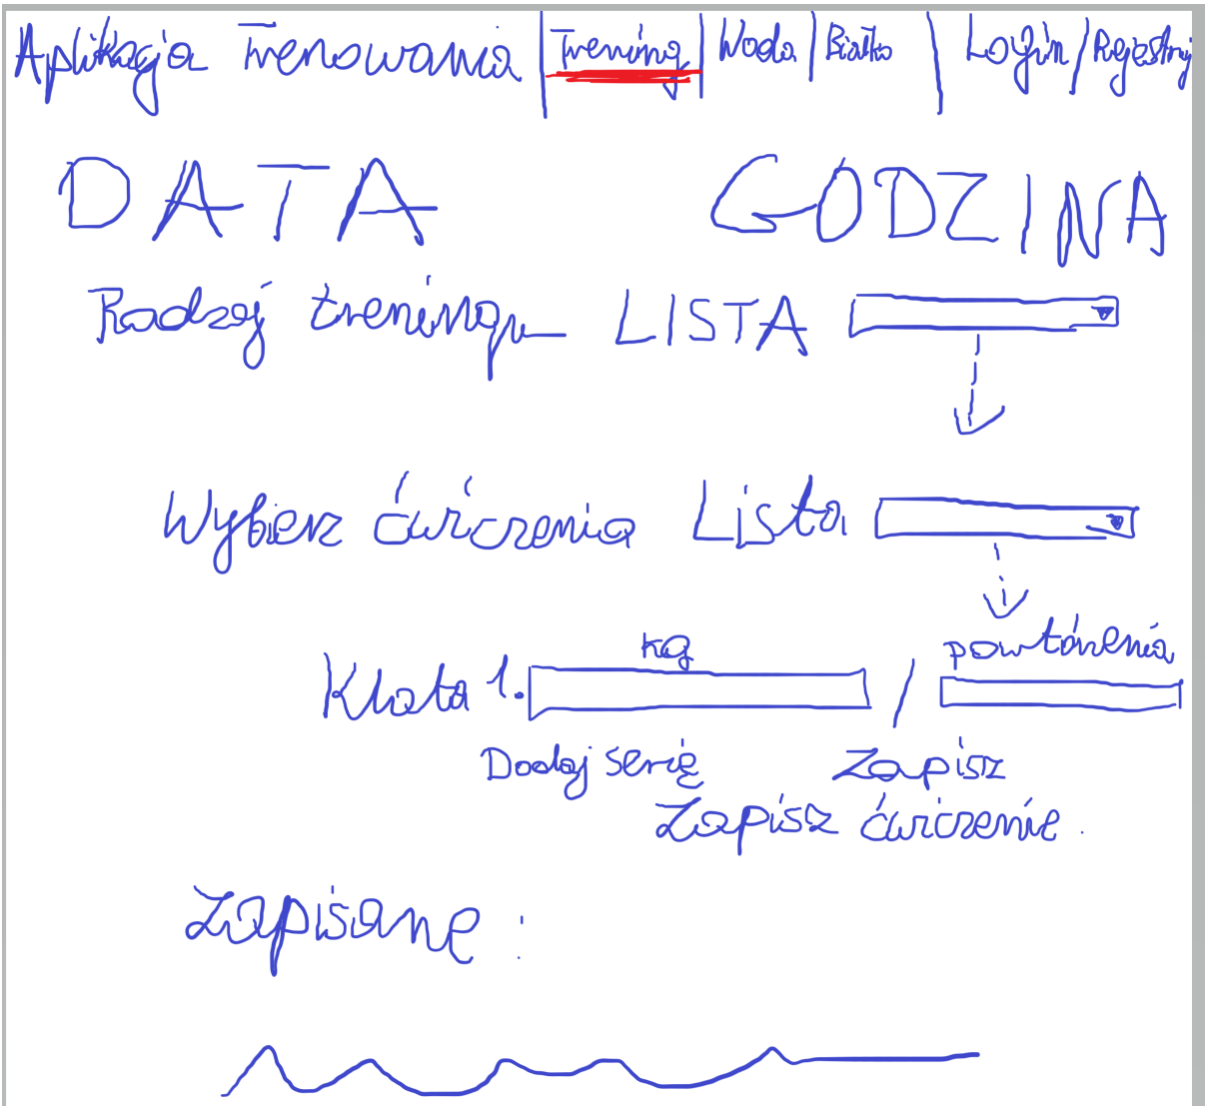 Aplikacja Trenowania | Trening | Woda | Białko | Login / Rejestruj
DATA GODZINA
Rodzaj treningu LISTA
Wybierz ćwiczenia Lista
kg powtórzenia
Klata 1. /
Dodaj serię Zapisz
Zapisz ćwiczenie.
Zapisane :